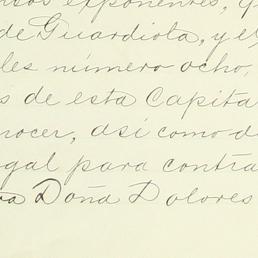 exponentes, q
de Guardiola, y el
les número ocho,
s de esta Capita
nocer, así como d
gal para contra
Doña Dolores